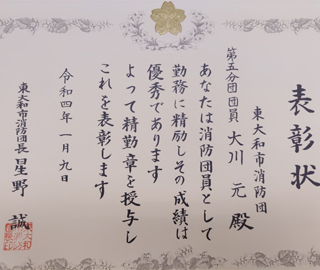 表彰状
東大和市消防団
第五分団団員 大川 元 殿
あなたは消防団員として
勤務に精励しその成績は
優秀であります
よって精勤章を授与し
これを表彰します
令和四年一月九日
東大和市消防団長 星野 誠